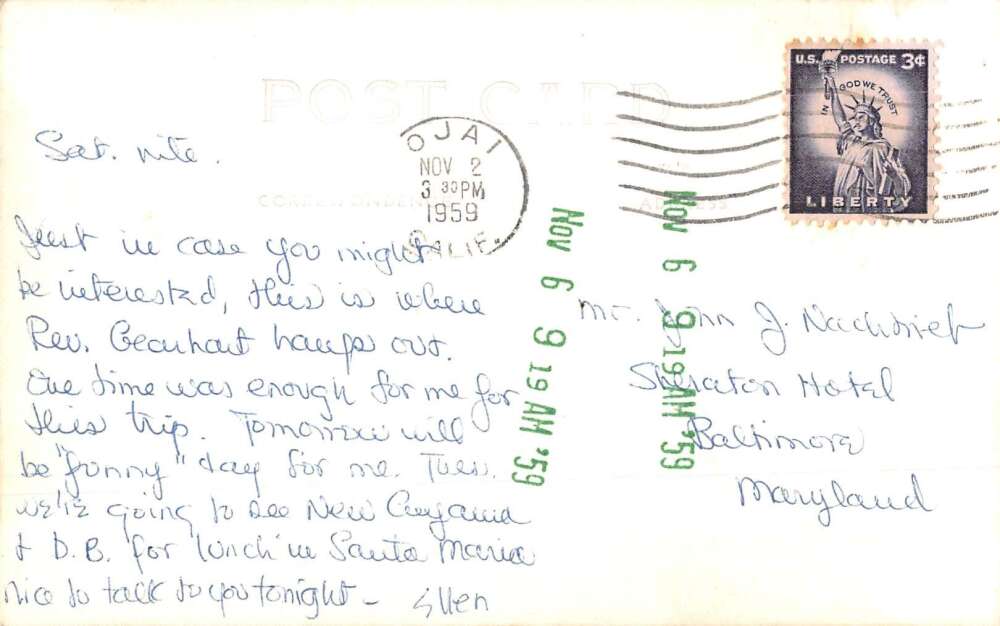 POST CARD
CORRESPONDENCE
ADDRESS
U.S. POSTAGE 3¢
IN GOD WE TRUST
LIBERTY
OJAI
NOV 2
3 30 PM
1959
CALIF.
NOV 6 9 19 AM '59
NOV 6 9 19 AM '59
Sat. nite.
Just in case you might
be interested, this is where
Rev. Gearhart hangs out.
One time was enough for me for
this trip. Tomorrow will
be "funny" day for me. Tues.
we're going to see New Cuyama
& D.B. for lunch in Santa Maria
nice to talk to you tonight - Ellen
Mr. John J.
Sheraton Hotel
Baltimore
Maryland